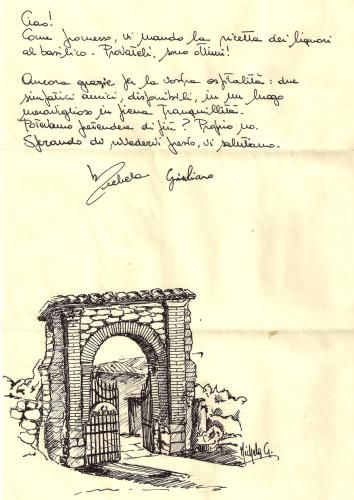 Ciao!
Come promesso, vi mando la ricetta dei liquori
al basilico - Provateli, sono ottimi!
Ancora grazie per la vostra ospitalità: due
simpatici amici, disponibili, in un luogo
meraviglioso in piena Tranquillità.
Potevamo pretendere di più? Proprio no.
Sperando di rivedervi presto, vi salutiamo.
Michela Giuliano
Michela G.